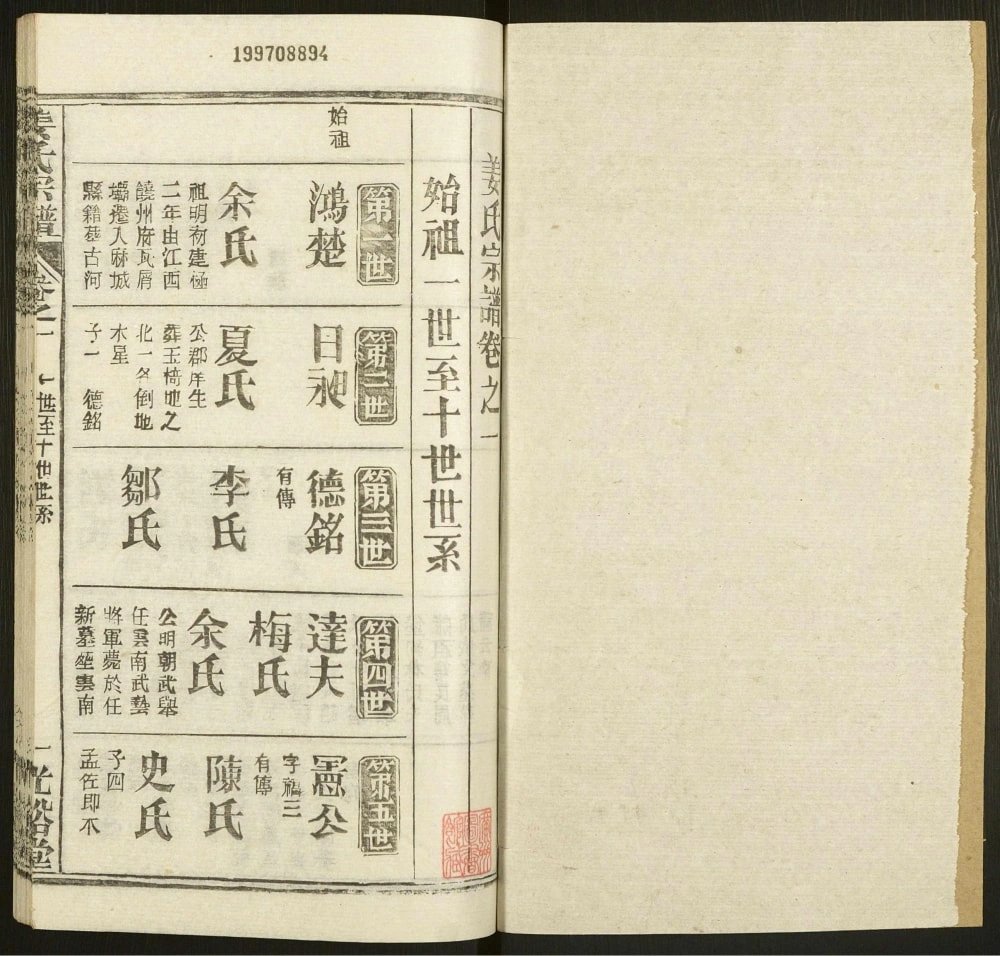 199708894
姜氏宗譜卷之一
始祖一世至十世世系
始祖
第一世
鴻楚
余氏
祖明初建極
二年由江西
饒州府瓦屑
壩遷入麻城
縣籍葬古河
第二世
日昶
夏氏
公郡庠生
葬玉椅地之
北一名倒地
木星
子一 德銘
第三世
德銘
有傳
李氏
鄒氏
第四世
達夫
梅氏
余氏
公明朝武舉
任雲南武藝
將軍薨於任
新墓塋雲南
第五世
憲公
字福三
有傳
陳氏
史氏
子四
孟佐即不
姜氏宗譜
卷之一
一世至十世世系
一
光裕堂